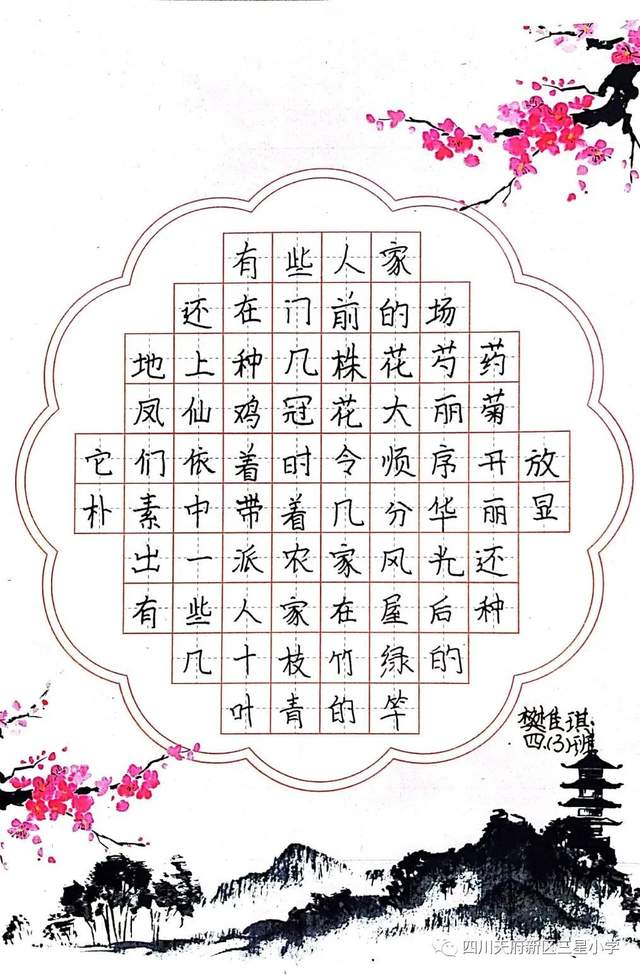 有些人家
还在门前的场
地上种几株花芍药
凤仙鸡冠花大丽菊
它们依着时令顺序开放
朴素中带着几分华丽显
出一派农家风光还
有些人家在屋后种
几十枝竹绿的
叶青的竿
樊佳琪
四.(3)班
四川天府新区三星小学